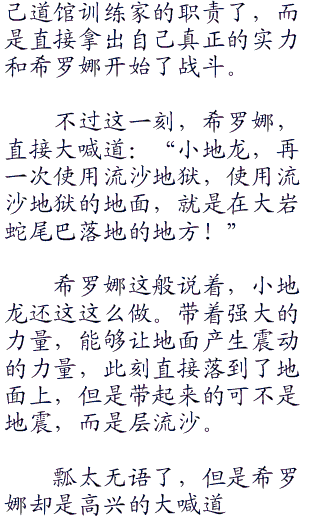 己道馆训练家的职责了，而
是直接拿出自己真正的实力
和希罗娜开始了战斗。
不过这一刻，希罗娜，
直接大喊道：“小地龙，再
一次使用流沙地狱，使用流
沙地狱的地面，就是在大岩
蛇尾巴落地的地方！”
希罗娜这般说着，小地
龙还这这么做。带着强大的
力量，能够让地面产生震动
的力量，此刻直接落到了地
面上，但是带起来的可不是
地震，而是层流沙。
瓢太无语了，但是希罗
娜却是高兴的大喊道